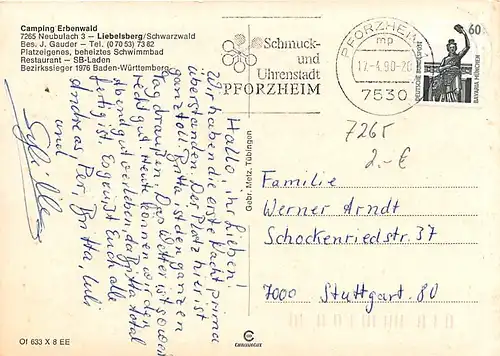 Camping Erbenwald
7265 Neubulach 3 – Liebelsberg/Schwarzwald
Bes. J. Gauder – Tel. (0 70 53) 73 82
Platzeigenes, beheiztes Schwimmbad
Restaurant – SB-Laden
Bezirkssieger 1976 Baden-Württemberg
Schmuck-
und
Uhrenstadt
PFORZHEIM
PFORZHEIM
mp
17.-4.90-20
7530
60
DEUTSCHE BUNDESPOST
BAVARIA MÜNCHEN
7265
2.-€
Hallo, ihr Lieben!
Wir haben die erste Nacht prima
überstanden. Der Platz hier ist
ganz toll. Britta ist den ganzen
Tag draußen. Das Wetter ist soweit
recht gut. Heute können wir den
Abend gut verleben, da Britta total
fertig ist. Es grüßt Euch alle
Andreas, Britta,
und
Gebr. Metz, Tübingen
Familie
Werner Arndt
Schockenriedstr. 37
7000 Stuttgart 80
Of 633 X 8 EE